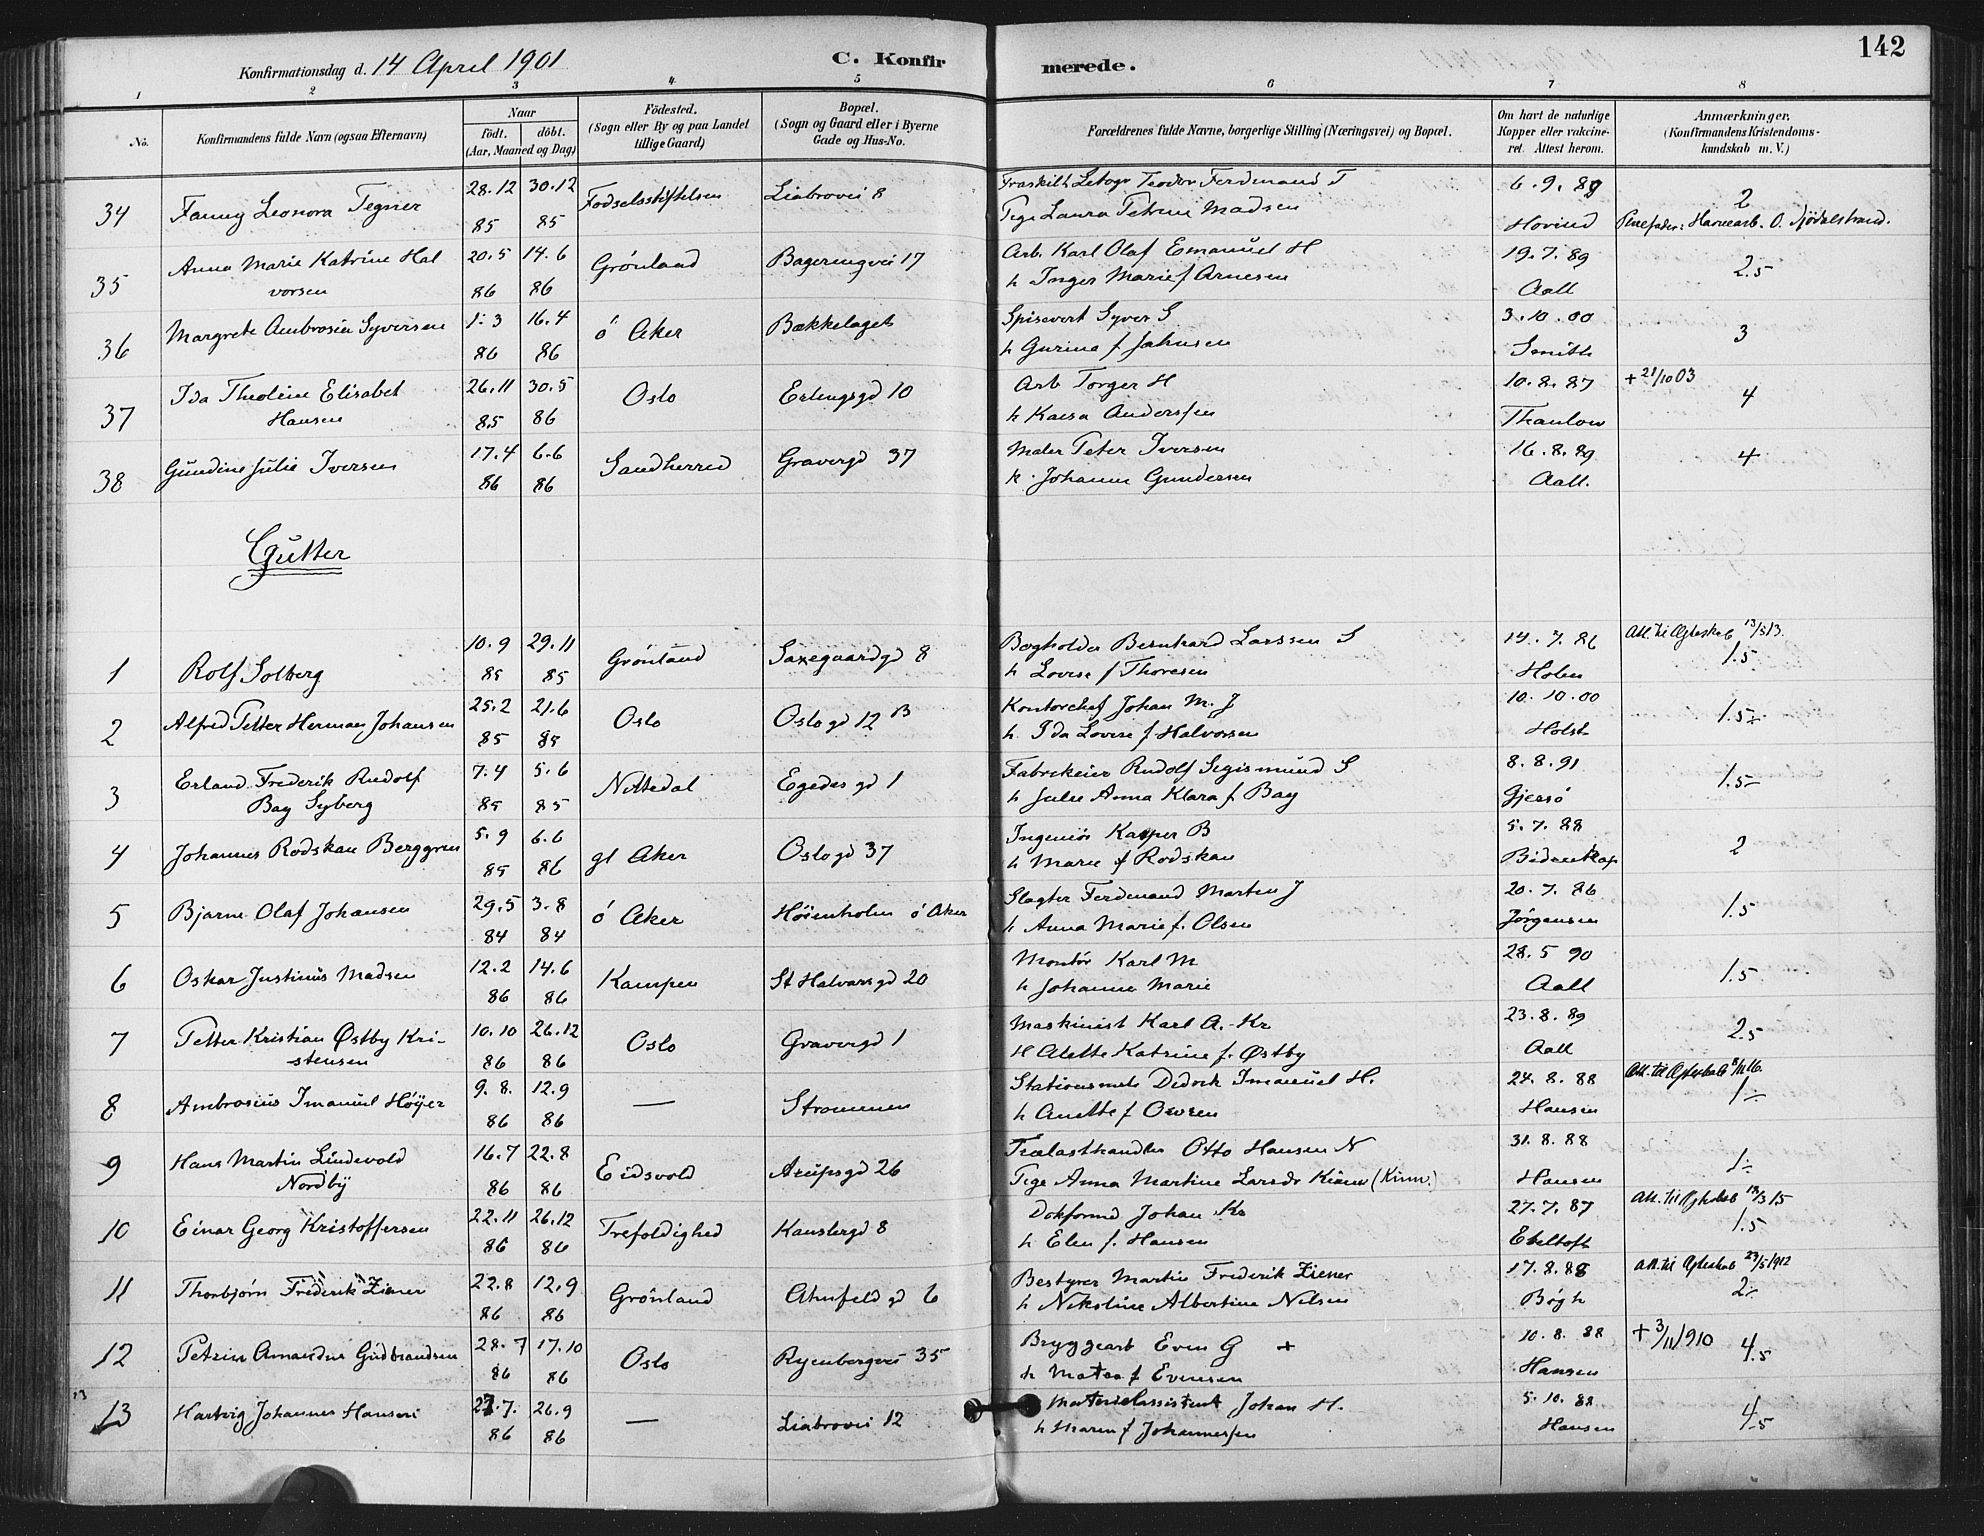 Konfirmationsdag d. 14 April 1901
C. Konfirmerede.
142
1 2 3 4 5 6 7 8
No.
Konfirmandens fulde Navn (ogsaa Efternavn)
Naar
født. døbt.
(Aar, Maaned og Dag)
Fødested.
(Sogn eller By og paa Landet
tillige Gaard)
Bopæl.
(Sogn og Gaard eller i Byerne
Gade og Hus-No.
Forældrenes fulde Navne, borgerlige Stilling (Næringsvei) og Bopæl.
Om havt de naturlige
Kopper eller vakcine-
ret. Attest herom.
Anmærkninger.
(Konfirmandens Kristendoms-
kundskab m. V.)
34 Fanny Leonora Tegner 28.12 85 30.12 85 Fødselsstiftelsen Liabrovei 8
Fraskilt Teodor Ferdinand T
Pige Laura Petrine Madsen
6.9.89 Hovind 2
Plejefader: Havnearb. O.
35 Anna Marie Katrine Hal
vorsen 20.5 86 14.6 86 Grønland 17
Arb. Karl Olaf Emanuel H
h Inger Marie f Arnesen
19.7.89 Aall 2.5
36 Margrete Ambrosia Syversen 1.3 86 16.4 86 ø Aker Bækkelaget
Syver S
h Gurine f Jahnsen
3.10.00 Smith 3
37 Ida Theoline Elisabet
Hansen 26.11 85 30.5 86 Oslo Erlingsgd 10
Arb Torger H
h Kaisa Anderssen
10.8.87 Thaulow + 21/10 03 4
38 Gundine Julie Iversen 17.4 86 6.6 86 Sandherred Gravergd 37
Maler Peter Iversen
h. Johanne Gundersen
16.8.89 Aall. 4
Gutter
1 Rolf Solberg 10.9 85 29.11 85 Grønland Saxegaardgd 8
Bogholder Bernhard Larssen S
h Lovise f Thoresen
14.7.86 Holm Att. til Ægteskab 13/5 13. 1.5
2 Alfred Petter Herman Johansen 25.2 85 21.6 85 Oslo Oslogd 12 B
Kontorchef Johan M. J
h. Ida Lovise f. Halvorsen
10.10.00 Holst 1.5
3 Erland Frederik Rudolf
Bay Syberg 7.4 85 5.6 85 Nittedal Egedesgd 1
Fabrikeier Rudolf Segismund S
h Julie Anna Klara f. Bay
8.8.91 Gjersø 1.5
4 Johannes Rodskan Berggren 5.9 85 6.6 86 gl Aker Oslogd 37
Ingeniør Kasper B
h Marie f Rodskan
5.7.88 Bidenkap 2
5 Bjarne Olaf Johansen 29.5 84 3.8 84 ø Aker Høienholm ø Aker
Slagter Ferdinand Martin J
h Anna Marie f. Olsen
20.7.86 Jørgensen 1.5
6 Oskar Justinus Madsen 12.2 86 14.6 86 Kampen St Halvarsgd 20
Montør Karl M
h Johanne Marie
28.5 90 Aall 1.5
7 Petter Kristian Østby Kri-
stensen 10.10 86 26.12 86 Oslo Gravergd 1
Maskinist Karl A. Kr
H Alette Katrine f. Østby
23.8.89 Aall 2.5
8 Ambrosius Imanuel Høyer 9.8. 86 12.9 86 — Strømmen
Stationsmester Didrik Imanuel H.
h Anette f
24.8.88 Hansen Att. til Ægteskab 1
9 Hans Martin Lindevold
Nordby 16.7 86 22.8 86 Eidsvold Arupsgd 26
Trælasthandler Otto Hansen N
Pige Anna Martine Larsdr
31.8.88 Hansen 1
10 Einar Georg Kristoffersen 22.11 86 26.12 86 Trefoldighed Kanslergd 8
Dokformd Johan Kr
h Elen f. Hansen
27.7.87 Ebeltoft Att. til Ægteskab 19/3 15 1.5
11 Thorbjørn Frederik Ziener 22.8 86 12.9 86 Grønland Ahnfeldgd 6
Bestyrer Martin Frederik Ziener
h Nikoline Albertine Nilsen
17.8.88 Bøgh Att. til Ægteskab 23/5 1912 2
12 Petrin Amandus Gudbrandsen 28.7 86 17.10 86 Oslo Ryenbergvei 35
Bryggearb Even G +
h Matea f Evensen
10.8.88 Hansen + 3/11 1910 4.5
13 Hartvig Johannes Hansen 27.7. 86 26.9 86 — Liabrovei 12
Materialassistent Johan H.
h Maren f Johannessen
5.10.88 Hansen 4.5